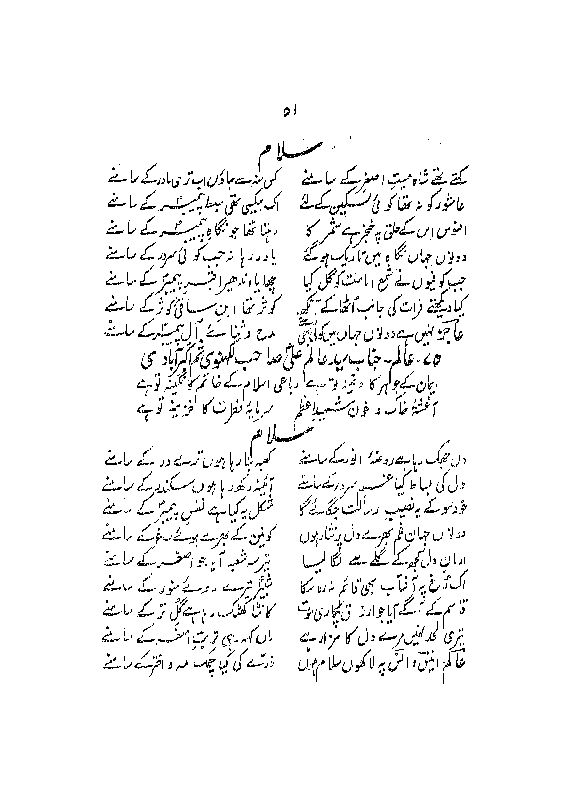 ۵۱
سلام
کہتے تھے شاہ میتِ اصغر کے سامنے کس منہ سے جاؤں اب تری مادر کے سامنے
عاشور کو نہ تھا کوئی تسکین کے لئے اک بیکسی تھی سبطِ پیمبر کے سامنے
افسوس اس کے حلق پہ خنجر ہے شمر کا رہتا تھا جو نگاہِ پیمبر کے سامنے
دونوں جہاں نگاہ میں تاریک ہوگئے یاور رہا نہ جب کوئی سرور کے سامنے
جب کوفیوں نے شمع امامت کو گل کیا چھایا اندھیرا قبرِ پیمبر کے سامنے
کیا دیکھتے فرات کی جانب اٹھا کے آنکھ کوثر تھا ابنِ ساقیِ کوثر کے سامنے
نہیں ہے دونوں جہاں میں کوئی مدح و ثنائے آلِ پیمبر کے سامنے
۷۵۔ عالم۔ جناب سید عالم علی صاحب لکھنوی ثم اکبرآبادی
کے جواہر کا تو ہے رباعی اسلام کے خاتم کا نگینہ تو ہے
آغشتۂ خاک و خون شہیدِ اعظم سرمایۂ فطرت کا خزینہ تو ہے
سلام
دل جھک رہا ہے روضۂ انور کے سامنے کعبہ بنا رہا ہوں ترے در کے سامنے
دل کی بساط کیا غمِ سرور کے سامنے آئینہ رکھ رہا ہوں سکندر کے سامنے
خود سو کے یہ نصیب رسالت جگائے گا مشکل یہ کیا ہے نفسِ پیمبر کے سامنے
دونوں جہان غم بھرے دل پر نثار ہوں کونین کے سامنے
ارمان دل سمجھ کے گلے سے لگا لیا تیرِ سہ شعبہ آیا جو اصغر کے سامنے
اک رخ پہ آفتاب بھی قائم نہ رہ سکا شبیر تیرے روئے منور کے سامنے
قاسم کے آگے آیا جو ارزق پکاری موت کانٹا کھٹک رہا ہے گلِ تر کے سامنے
تیری لحد نہیں مرے دل کا مزار ہے ماں کہہ رہی تھی تربتِ اصغر کے سامنے
عالم انیس و انس پہ لاکھوں سلام ہوں ذرے کی کیا چمک مہ و اختر کے سامنے